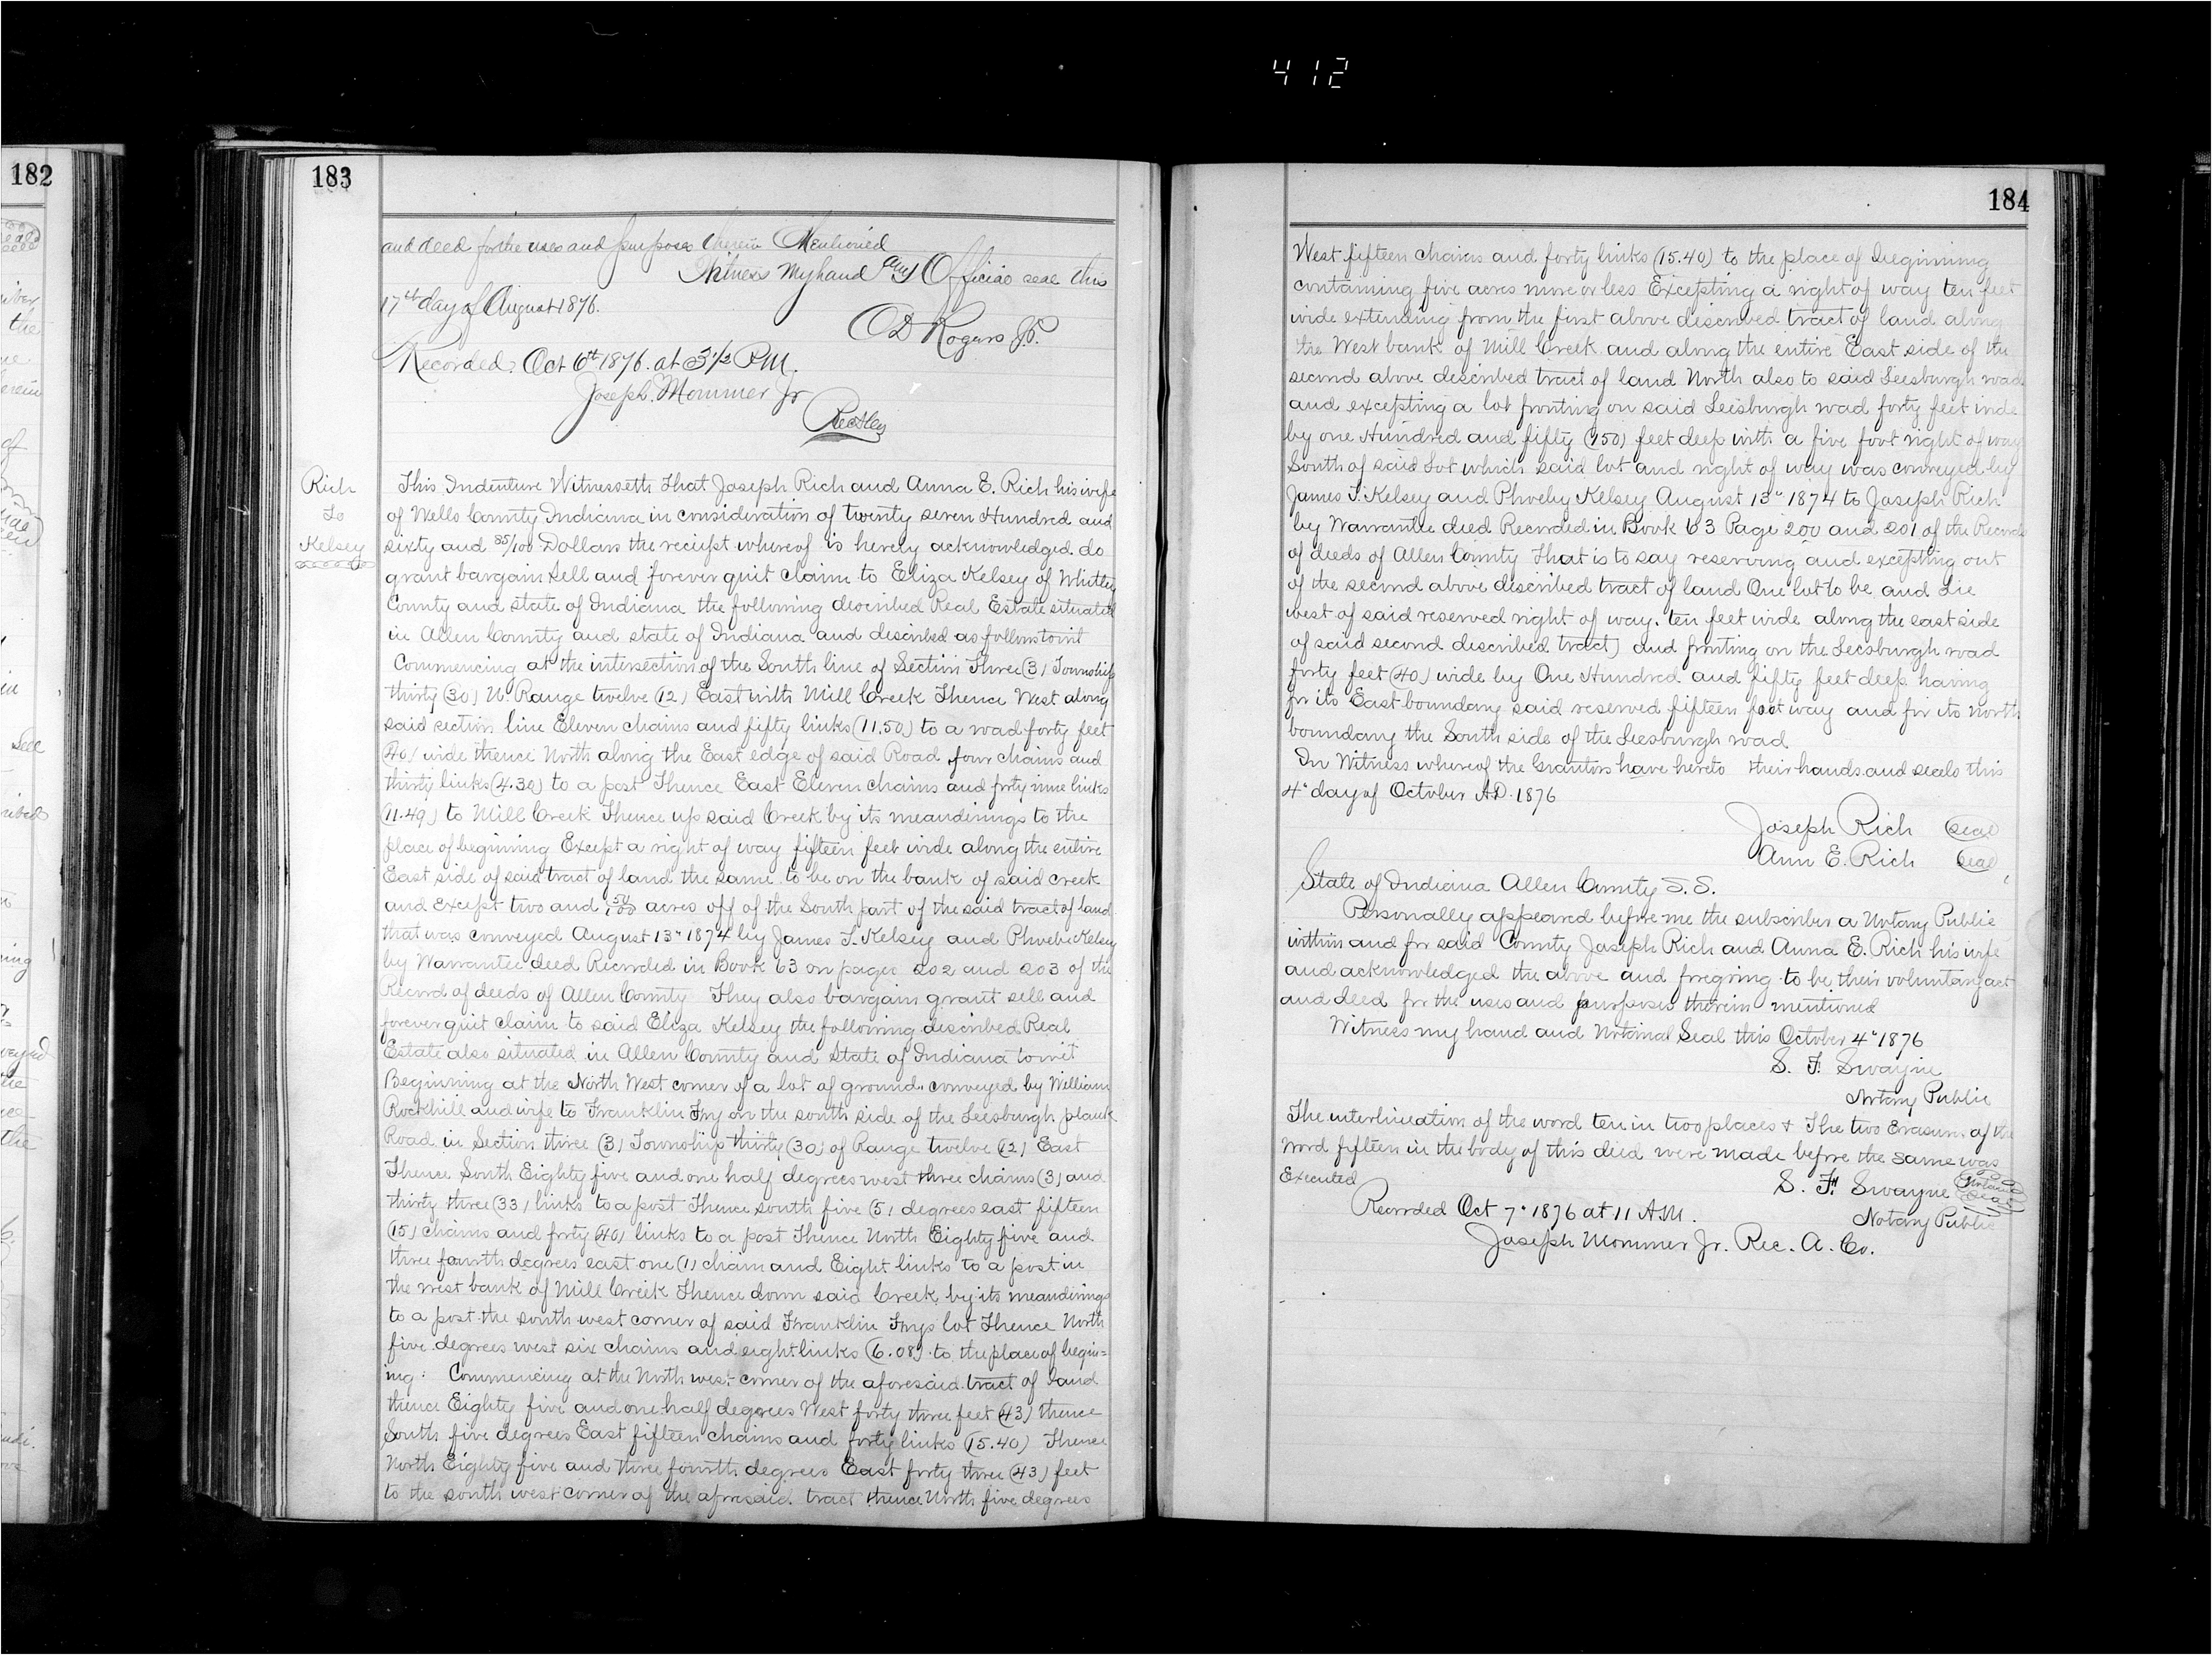 412
182
183
and deed for the uses and purposes therein Mentioned
Witness My hand and Official seal this
17th day of August 1876.
O D Rogers J.P.
Recorded. Oct 6th 1876. at 3 1/2 P.M.
Joseph. Mommer Jr
Rich
To
Kelsey
This Indenture Witnesseth That Joseph Rich and Anna E. Rich his wife
of Wells County Indiana in consideration of twenty seven Hundred and
sixty and 85/100 Dollars the reciept whereof is hereby acknowledged. do
grant bargain sell and forever quit claim to Eliza Kelsey of Whitley
County and state of Indiana the following described Real Estate situated
in Allen County and state of Indiana and described as follows towit
Commencing at the intersection of the South line of Section Three (3) Township
thirty (30) N. Range twelve (12) East with Mill Creek Thence West along
said section line Eleven chains and fifty links (11.50) to a road forty feet
(40) wide thence North along the East edge of said Road four chains and
thirty links (4.30) to a post Thence East Eleven chains and forty nine links
(11.49) to Mill Creek Thence up said Creek by its meanderings to the
place of begining Except a right of way fifteen feet wide along the entire
East side of said tract of land the same to be on the bank of said creek
and except two and acres off of the South part of the said tract of land
that was conveyed August 13" 1874 by James T. Kelsey and Phoebe Kelsey
by Warrantee deed Recorded in Book 63 on pages 202 and 203 of the
Record of deeds of Allen County They also bargain grant sell and
forever quit claim to said Eliza Kelsey the following described Real
Estate also situated in Allen County and State of Indiana towit
Beginning at the North West corner of a lot of ground. conveyed by William
Rockhill and wife to Franklin Fry on the south side of the Leesburgh plank
Road in Section three (3) Township thirty (30) of Range twelve (12) East
Thence South Eighty five and one half degrees west three chains (3) and
thirty three (33) links to a post Thence south five (5) degrees east fifteen
(15) chains and forty (40) links to a post Thence North Eighty five and
three fourth degrees east one (1) chain and Eight links to a post in
the west bank of Mill Creek Thence down said Creek by its meanderings
to a post the south west corner of said Franklin Frys lot Thence North
five degrees west six chains and eight links (6.08) to the place of begin=
ing: Commencing at the North west corner of the aforesaid tract of land
thence Eighty five and one half degrees West forty three feet (43) thence
South five degrees East fifteen chains and forty links (15.40) Thence
North Eighty five and three fourth degrees East forty three (43) feet
to the south west corner of the afresaid tract thence North five degrees
184
West fifteen chains and forty links (15.40) to the place of begining
containing five acres more or less Excepting a right of way ten feet
wide extending from the first above discribed tract of land along
the West bank of Mill Creek and along the entire East side of the
second above described tract of land North also to said Leesburgh road
and excepting a lot fronting on said Leesburgh road forty feet wide
by one Hundred and fifty (150) feet deep with a five foot right of way
South of said Lot which said lot and right of way was conveyed by
James T. Kelsey and Phoeby Kelsey August 13" 1874 to Joseph Rich
by Warrantee deed Recorded in Book 63 Page 200 and 201 of the Records
of deeds of Allen County That is to say reserving and excepting out
of the second above discribed tract of land One lot to be and Lie
west of said reserved right of way. ten feet wide along the east side
of said second described tract) and fronting on the Leesburgh road
forty feet (40) wide by One Hundred and fifty feet deep having
for its East boundary said reserved fifteen foot way and for its North
boundary the South side of the Leesburgh road
In Witness whereof the Grantors have hereto their hands and seals this
4" day of October A.D. 1876
Joseph Rich Seal
Ann E. Rich Seal
State of Indiana Allen County S.S.
Personally appeared before me the subscriber a Notary Public
within and for said County Joseph Rich and Anna E. Rich his wife
and acknowledged the above and foregoing to be their voluntary act
and deed for the uses and purposes therein mentioned
Witness my hand and Notarial Seal this October 4" 1876
S. F. Swayne
Notary Public
The interlineation of the word ten in two places & The two Erasures of the
word fifteen in the body of this deed were made before the same was
Executed
S. F. Swayne Notarial Seal
Notary Public
Recorded Oct 7" 1876 at 11 A.M.
Joseph Mommer Jr. Rec. A. Co.